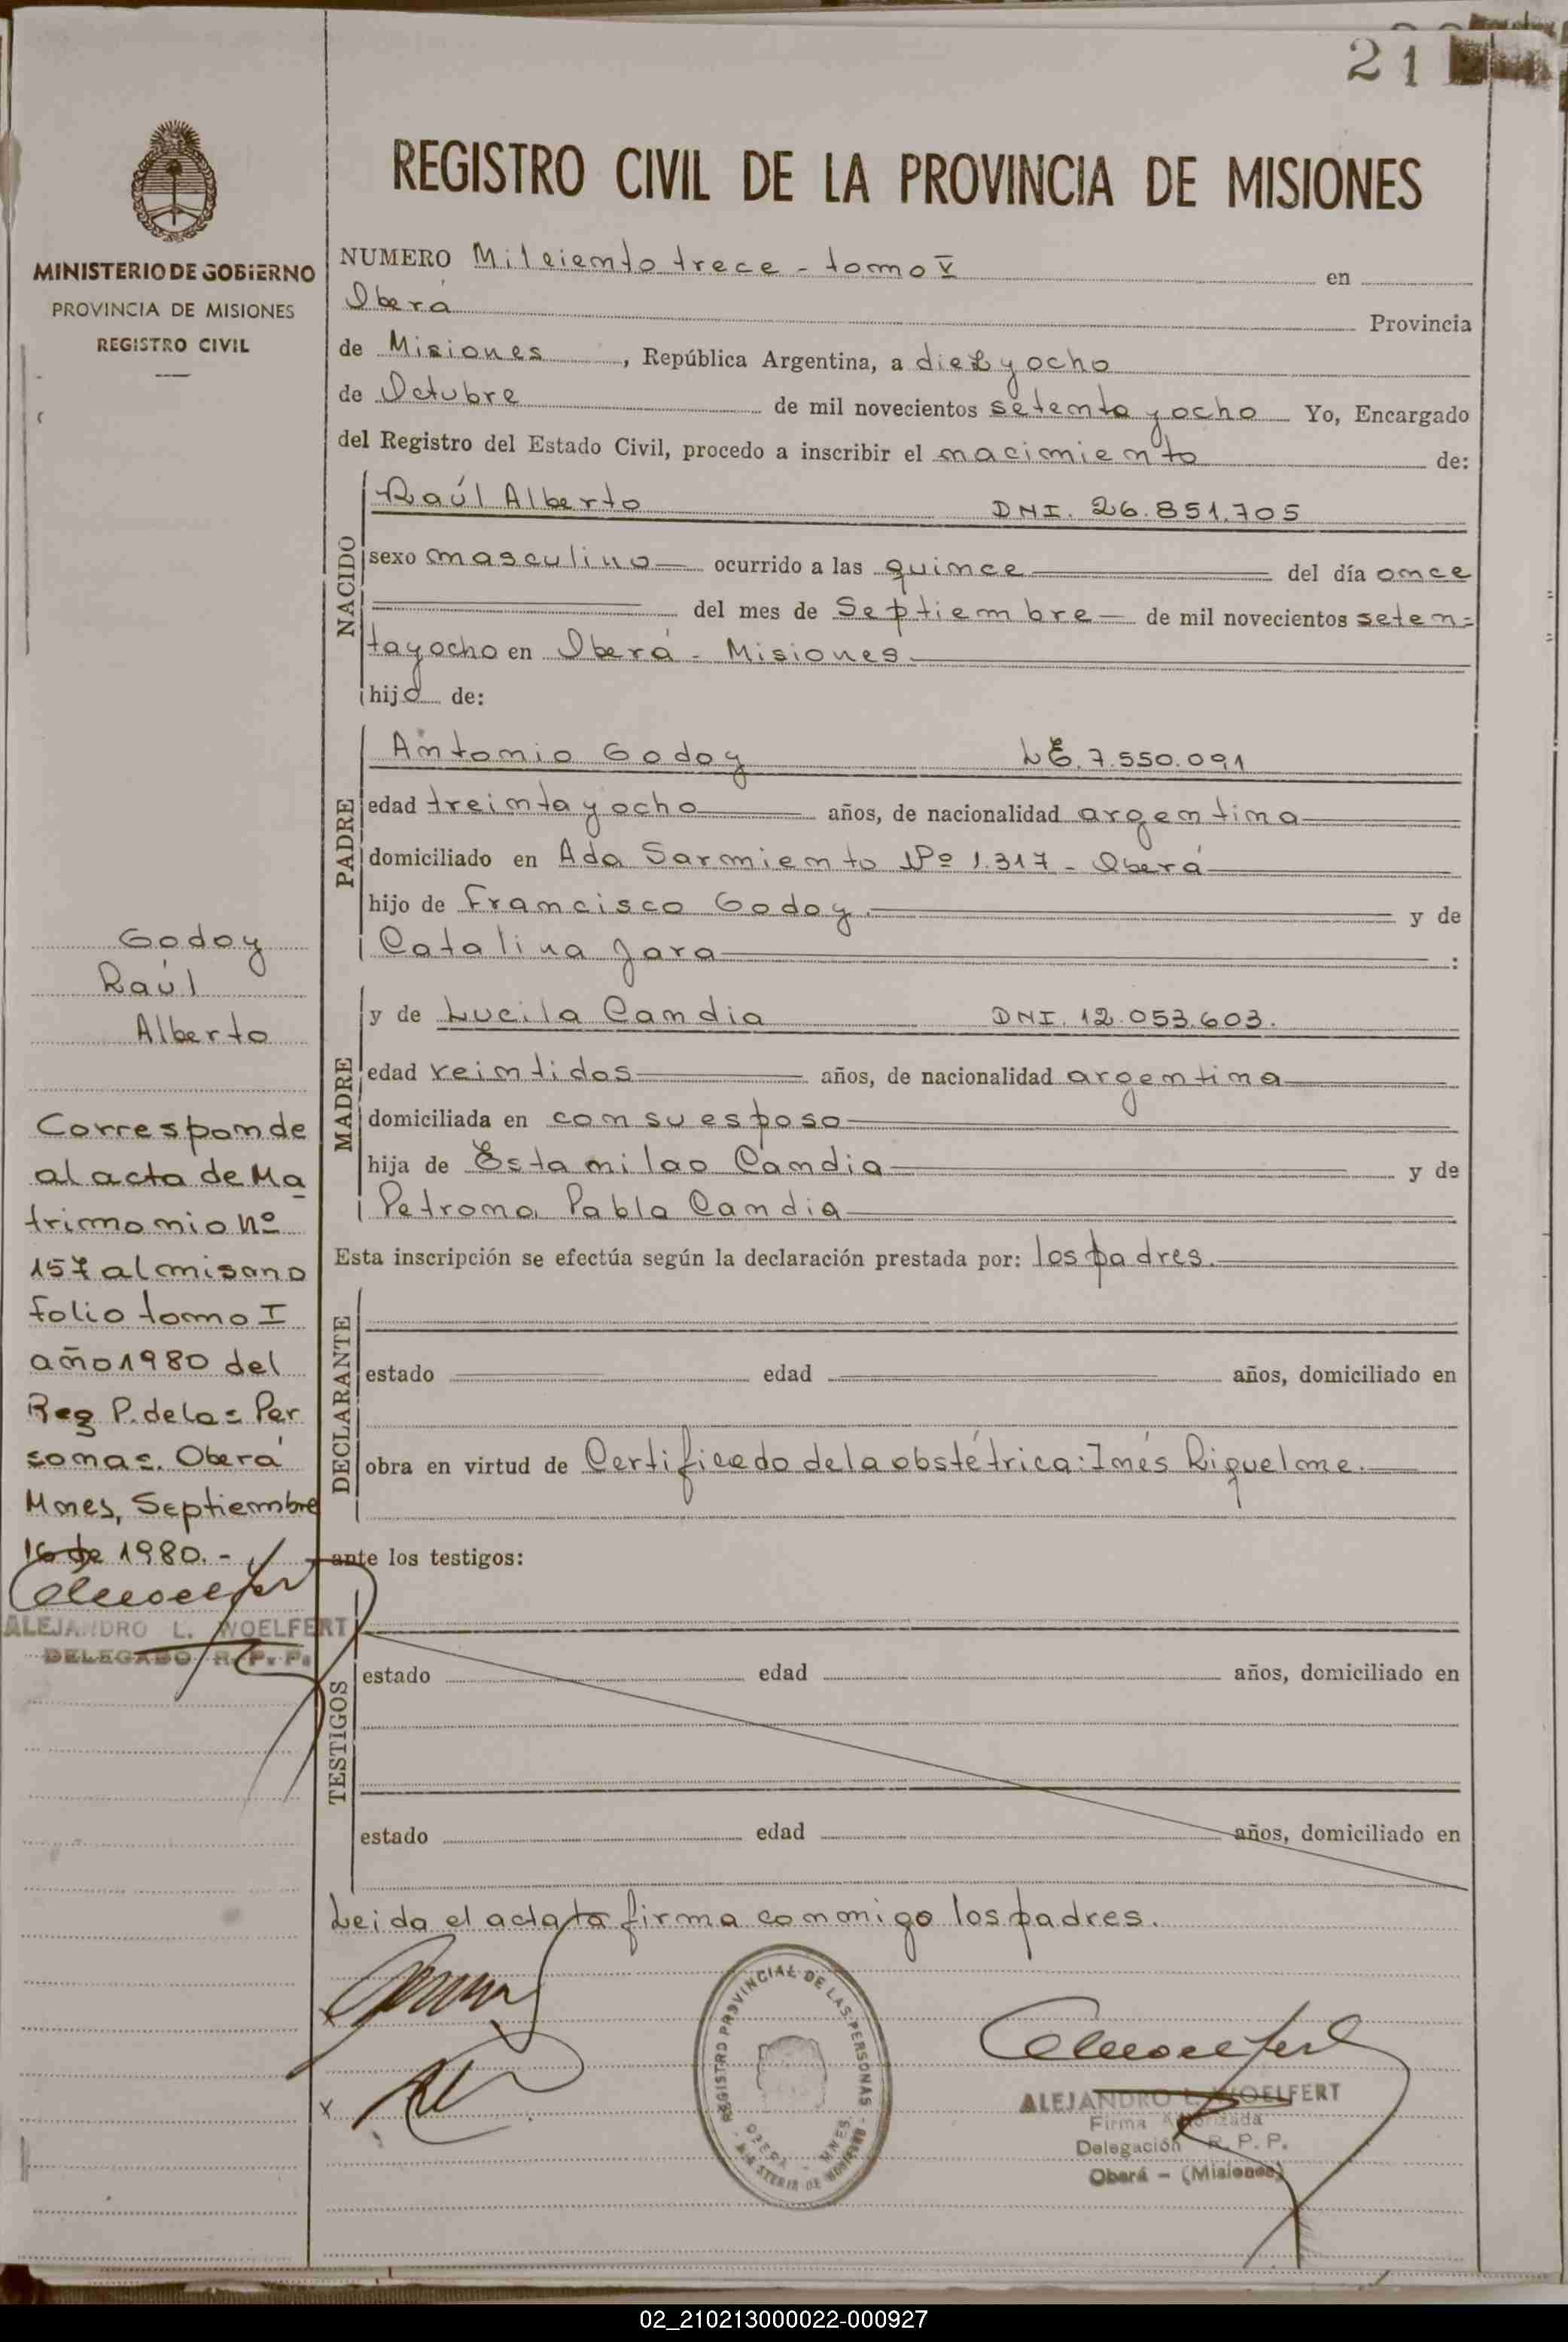 21
REGISTRO CIVIL DE LA PROVINCIA DE MISIONES
MINISTERIO DE GOBIERNO
PROVINCIA DE MISIONES
REGISTRO CIVIL
NUMERO Milciento trece - tomo V en
Oberá Provincia
de Misiones, República Argentina, a diez y ocho
de Octubre de mil novecientos setenta y ocho Yo, Encargado
del Registro del Estado Civil, procedo a inscribir el nacimiento de:
NACIDO
Raúl Alberto DNI. 26.851.705
sexo masculino ocurrido a las quince del día once
del mes de Septiembre de mil novecientos seten=
tayocho en Oberá - Misiones.
hijo de:
PADRE
Antonio Godoy LE. 7.550.091
edad treinta y ocho años, de nacionalidad argentina
domiciliado en Ada Sarmiento Nº 1.317 - Oberá
hijo de Francisco Godoy. y de
Catalina Jara :
MADRE
y de Lucila Candia DNI. 12.053.603.
edad veintidos años, de nacionalidad argentina
domiciliada en con su esposo
hija de Estanilao Candia y de
Petrona Pabla Candia
Esta inscripción se efectúa según la declaración prestada por: los padres.
DECLARANTE
estado edad años, domiciliado en
obra en virtud de Certificado de la obstétrica: Inés Riquelme.
ante los testigos:
TESTIGOS
estado edad años, domiciliado en
estado edad años, domiciliado en
Leida el acta firma conmigo los padres.
Godoy
Raúl
Alberto
Corresponde
al acta de Ma
trimonio nº
157 al misano
folio tomo I
año 1980 del
Reg P. de las Per
sonas. Oberá
Mnes, Septiembre
16 de 1980.-
ALEJANDRO L. WOELFERT
DELEGADO R. P. P.
x
x
REGISTRO PROVINCIAL DE LAS PERSONAS
OBERA - MNES.
MINISTERIO DE GOBIERNO
ALEJANDRO L. WOELFERT
Firma Autorizada
Delegación R. P. P.
Oberá - (Misiones)
02_210213000022-000927